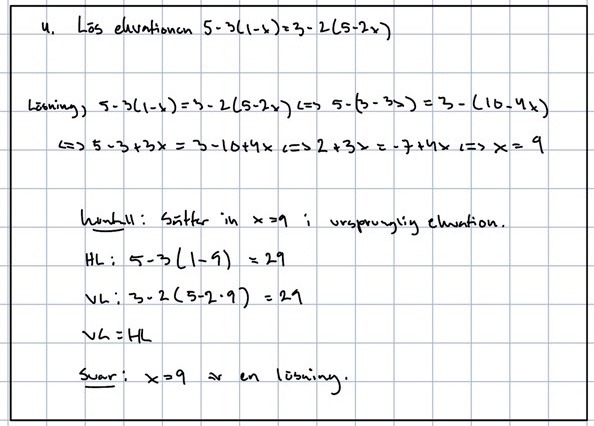 4. Lös ekvationen 5-3(1-x)=3-2(5-2x)
Lösning, 5-3(1-x)=3-2(5-2x) <=> 5-(3-3x) = 3-(10-4x)
<=> 5-3+3x = 3-10+4x <=> 2+3x = -7+4x <=> x = 9
Kontroll: Sätter in x=9 i ursprunglig ekvation.
HL: 5-3(1-9) = 29
VL: 3-2(5-2·9) = 29
VL=HL
Svar: x=9 är en lösning.